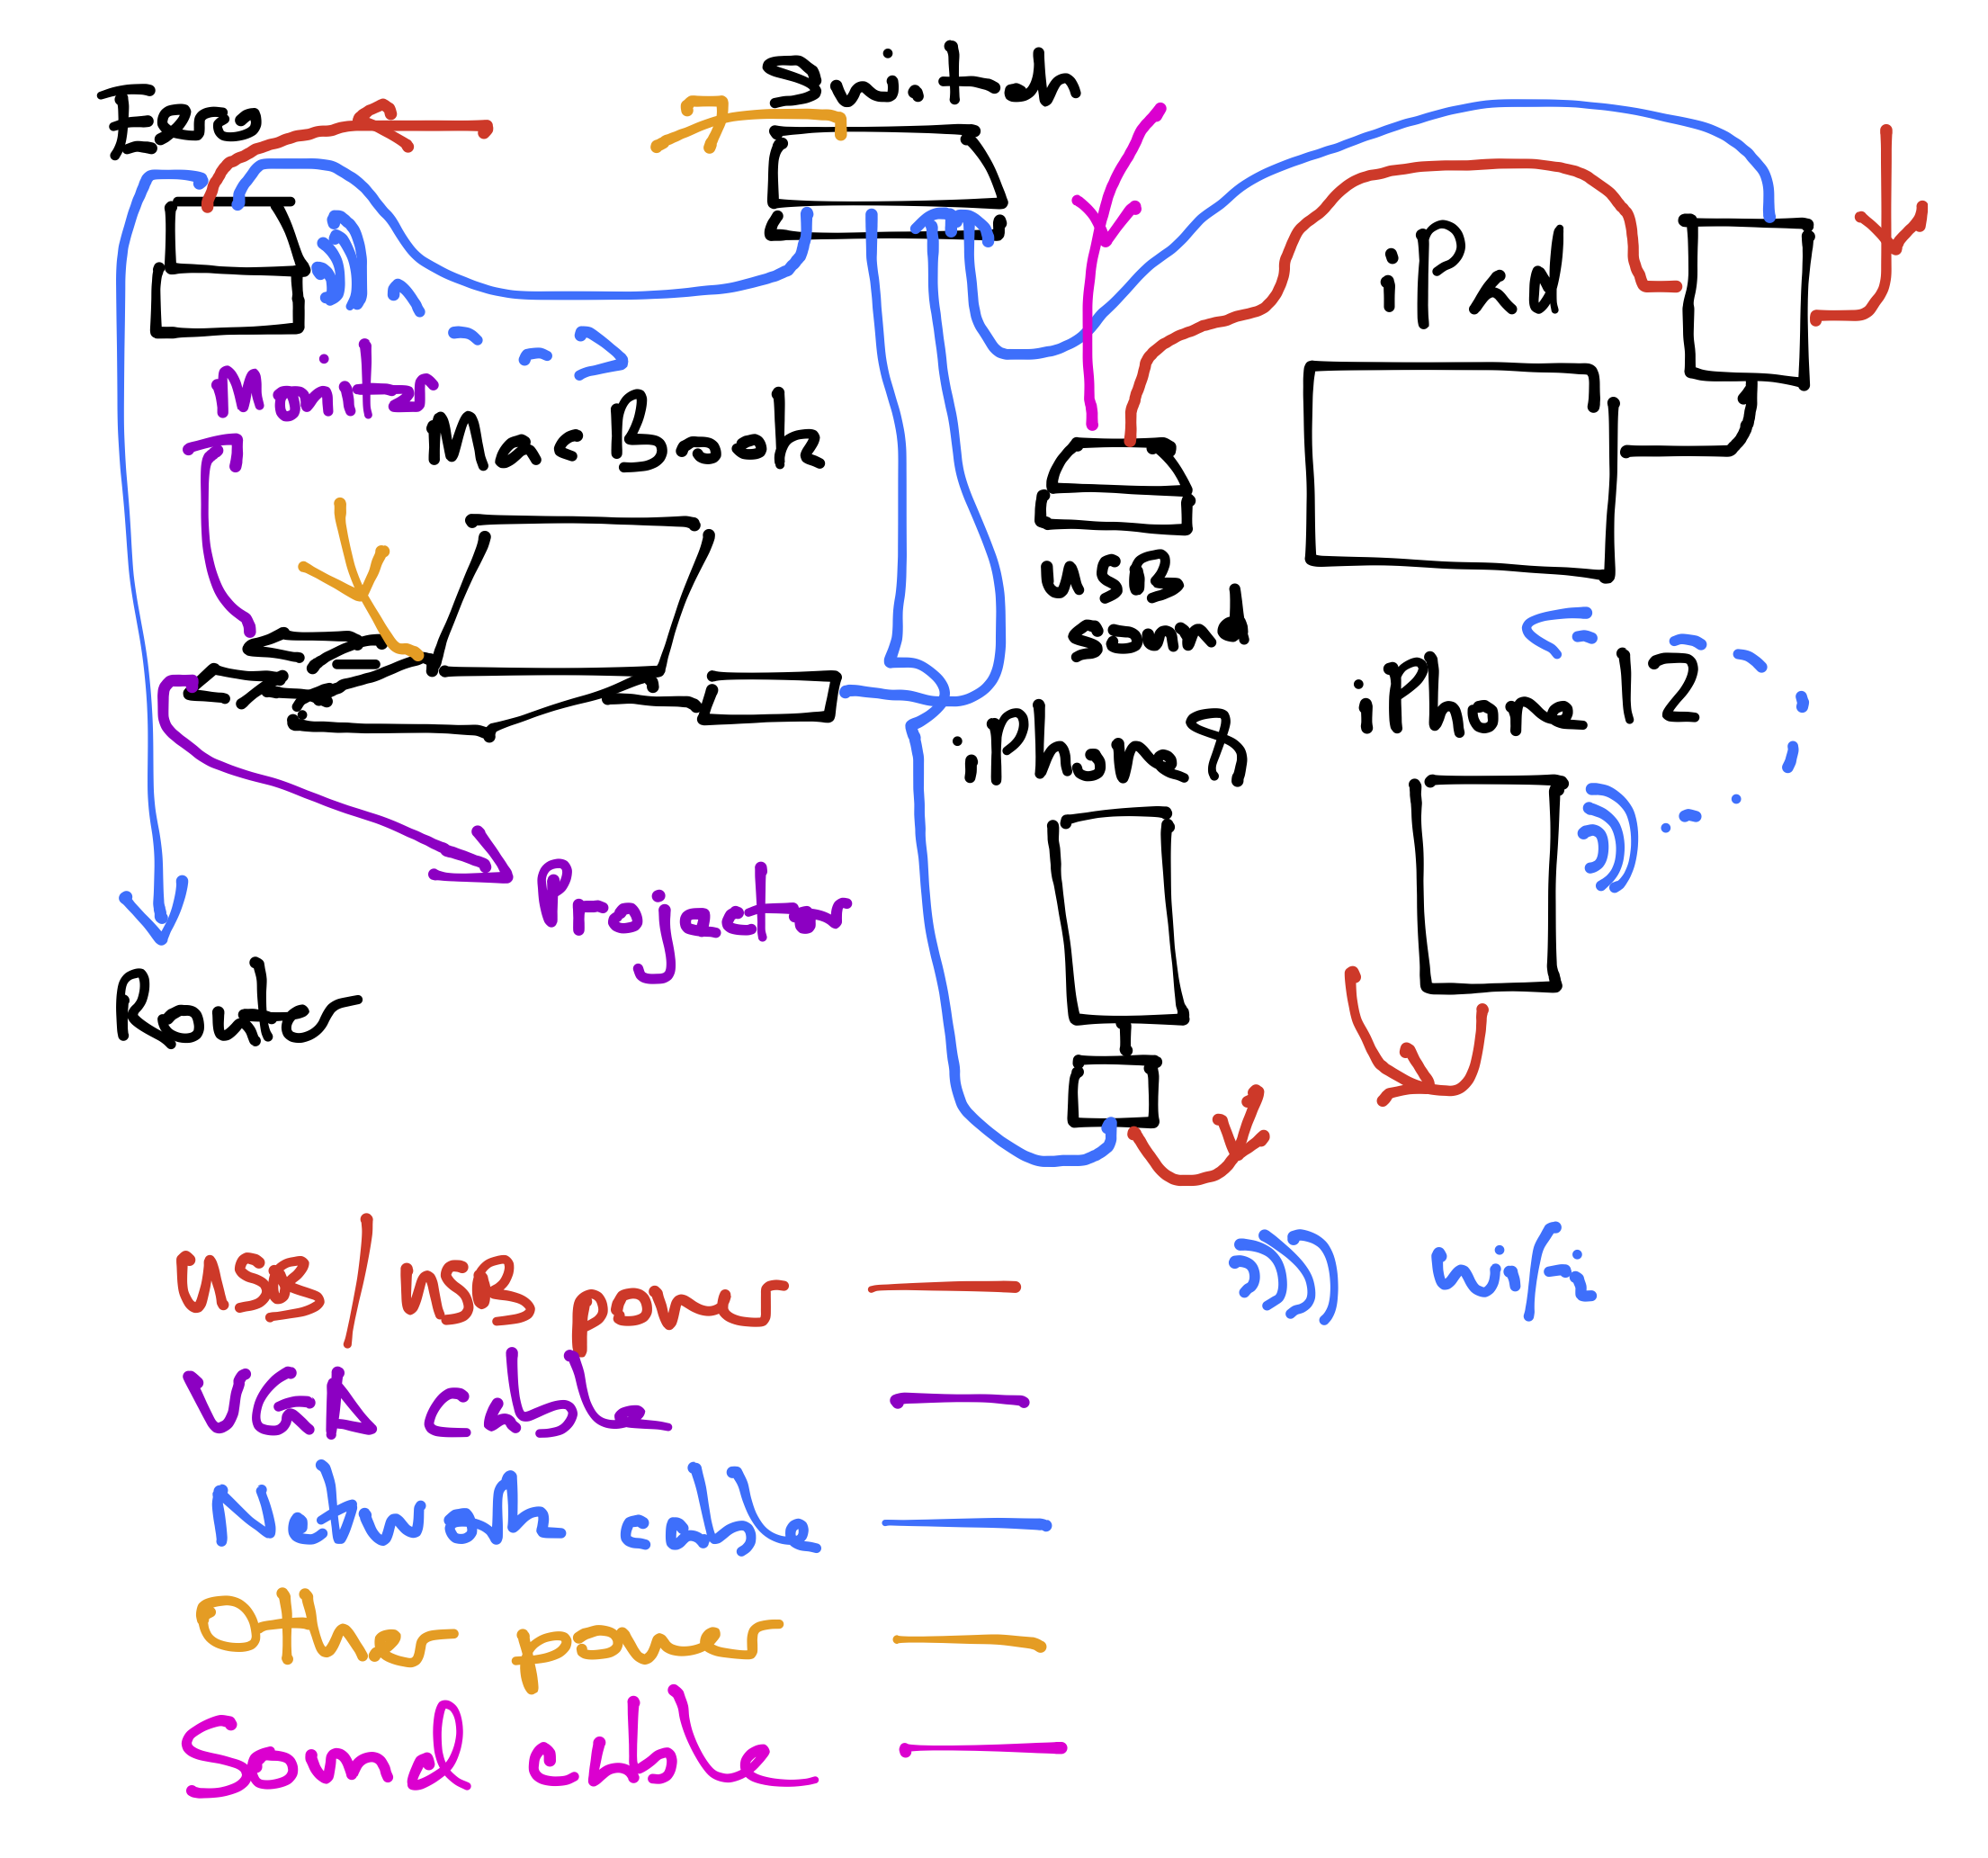 Eero
Switch
iPad
Monitor
MacBook
USB
Sound
iPhone 12
iPhone 8
Projector
Router
USB/USB power
wifi
VGA cable
Network cable
Other power
Sound cable